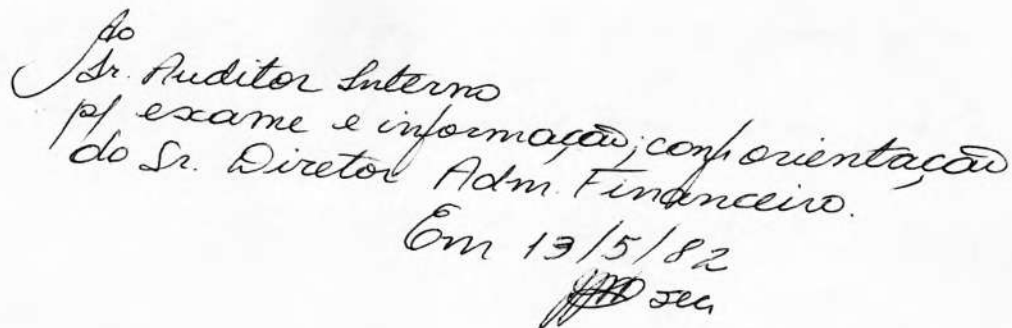 Ao
Sr. Auditor Interno
p/ exame e informação, conf orientação
do Sr. Diretor Adm. Financeiro.
Em 13/5/82